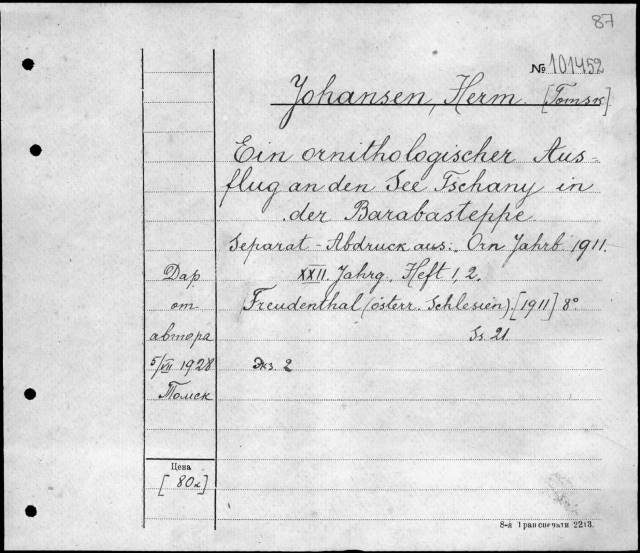 87
№ 101452
Johansen, Herm. [Tomsk]
Ein ornithologischer Aus-
flug an den See Tschany in
der Barabasteppe.
Separat-Abdruck aus: Orn Jahrb 1911.
XXII. Jahrg. Heft 1, 2.
Freudenthal (österr. Schlesien). [1911] 8°
Ss. 21.
Дар
от
автора
5/VII 1928
Томск
Экз. 2
Цена
[80к]
8-я 2213.